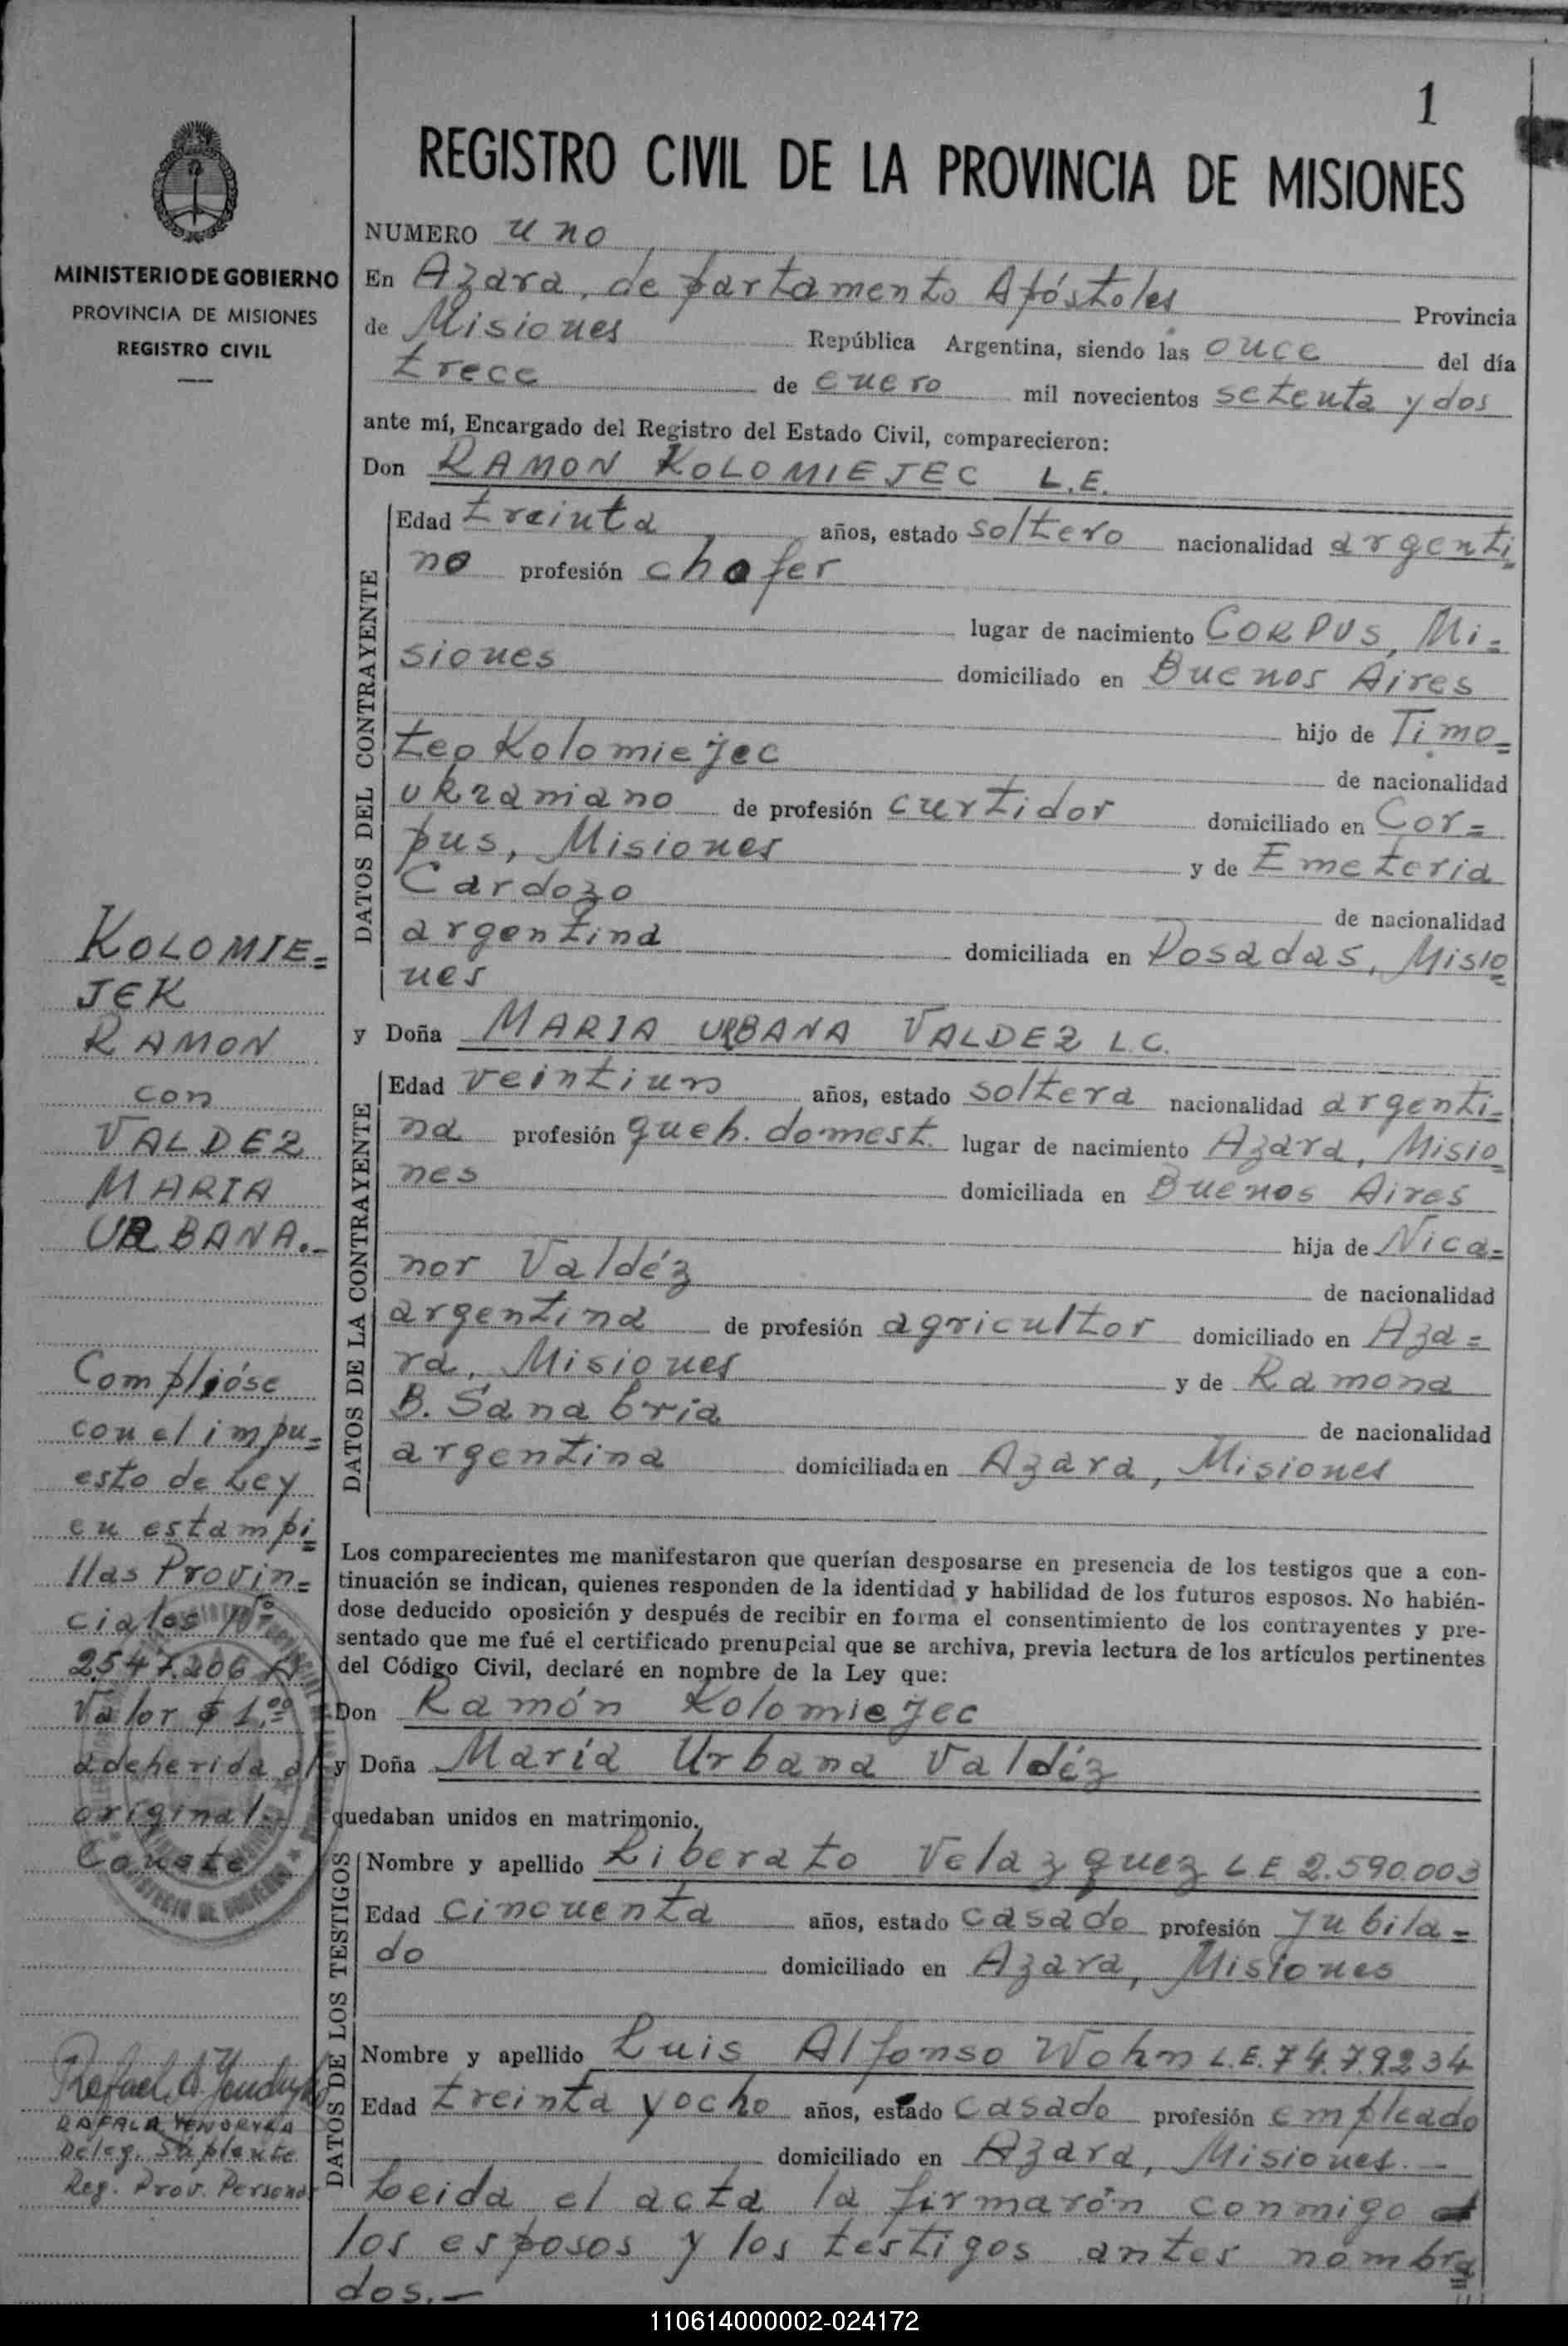 1
REGISTRO CIVIL DE LA PROVINCIA DE MISIONES
MINISTERIO DE GOBIERNO
PROVINCIA DE MISIONES
REGISTRO CIVIL
NUMERO uno
En Azara, departamento Apóstoles Provincia
de Misiones República Argentina, siendo las once del día
trece de enero mil novecientos setenta y dos
ante mí, Encargado del Registro del Estado Civil, comparecieron:
Don RAMON KOLOMIEJEC L.E.
DATOS DEL CONTRAYENTE
Edad treinta años, estado soltero nacionalidad argenti=
no profesión chofer
lugar de nacimiento CORPUS, Mi=
siones domiciliado en Buenos Aires
hijo de Timo=
teo Kolomiejec de nacionalidad
ukraniano de profesión curtidor domiciliado en Cor=
pus, Misiones y de Emeteria
Cardozo de nacionalidad
argentina domiciliada en Posadas, Misio=
nes
y Doña MARIA URBANA VALDEZ L.C.
DATOS DE LA CONTRAYENTE
Edad veintiun años, estado soltera nacionalidad argenti=
na profesión queh. domest. lugar de nacimiento Azara, Misio=
nes domiciliada en Buenos Aires
hija de Nica=
nor Valdéz de nacionalidad
argentina de profesión agricultor domiciliado en Aza=
ra, Misiones y de Ramona
B. Sanabria de nacionalidad
argentina domiciliada en Azara, Misiones
Los comparecientes me manifestaron que querían desposarse en presencia de los testigos que a con-
tinuación se indican, quienes responden de la identidad y habilidad de los futuros esposos. No habién-
dose deducido oposición y después de recibir en forma el consentimiento de los contrayentes y pre-
sentado que me fué el certificado prenupcial que se archiva, previa lectura de los artículos pertinentes
del Código Civil, declaré en nombre de la Ley que:
Don Ramón Kolomiejec
y Doña María Urbana Valdéz
quedaban unidos en matrimonio.
DATOS DE LOS TESTIGOS
Nombre y apellido Liberato Velazquez L.E 2.590.003
Edad cincuenta años, estado casado profesión jubila=
do domiciliado en Azara, Misiones
Nombre y apellido Luis Alfonso Wohn L.E. 74.79234
Edad treinta y ocho años, estado casado profesión empleado
domiciliado en Azara, Misiones.-
Leida el acta la firmarón conmigo
los esposos y los testigos antes nombra=
dos.-
KOLOMIE=
JEK
RAMON
con
VALDEZ
MARIA
URBANA.-
Complióse
con el impu=
esto de Ley
en estampi=
llas Provin=
ciales Nº
2547.206
Valor $ 1.00
adeherida al
original.
Conste
Deleg. Suplente
Reg. Prov. Person
110614000002-024172